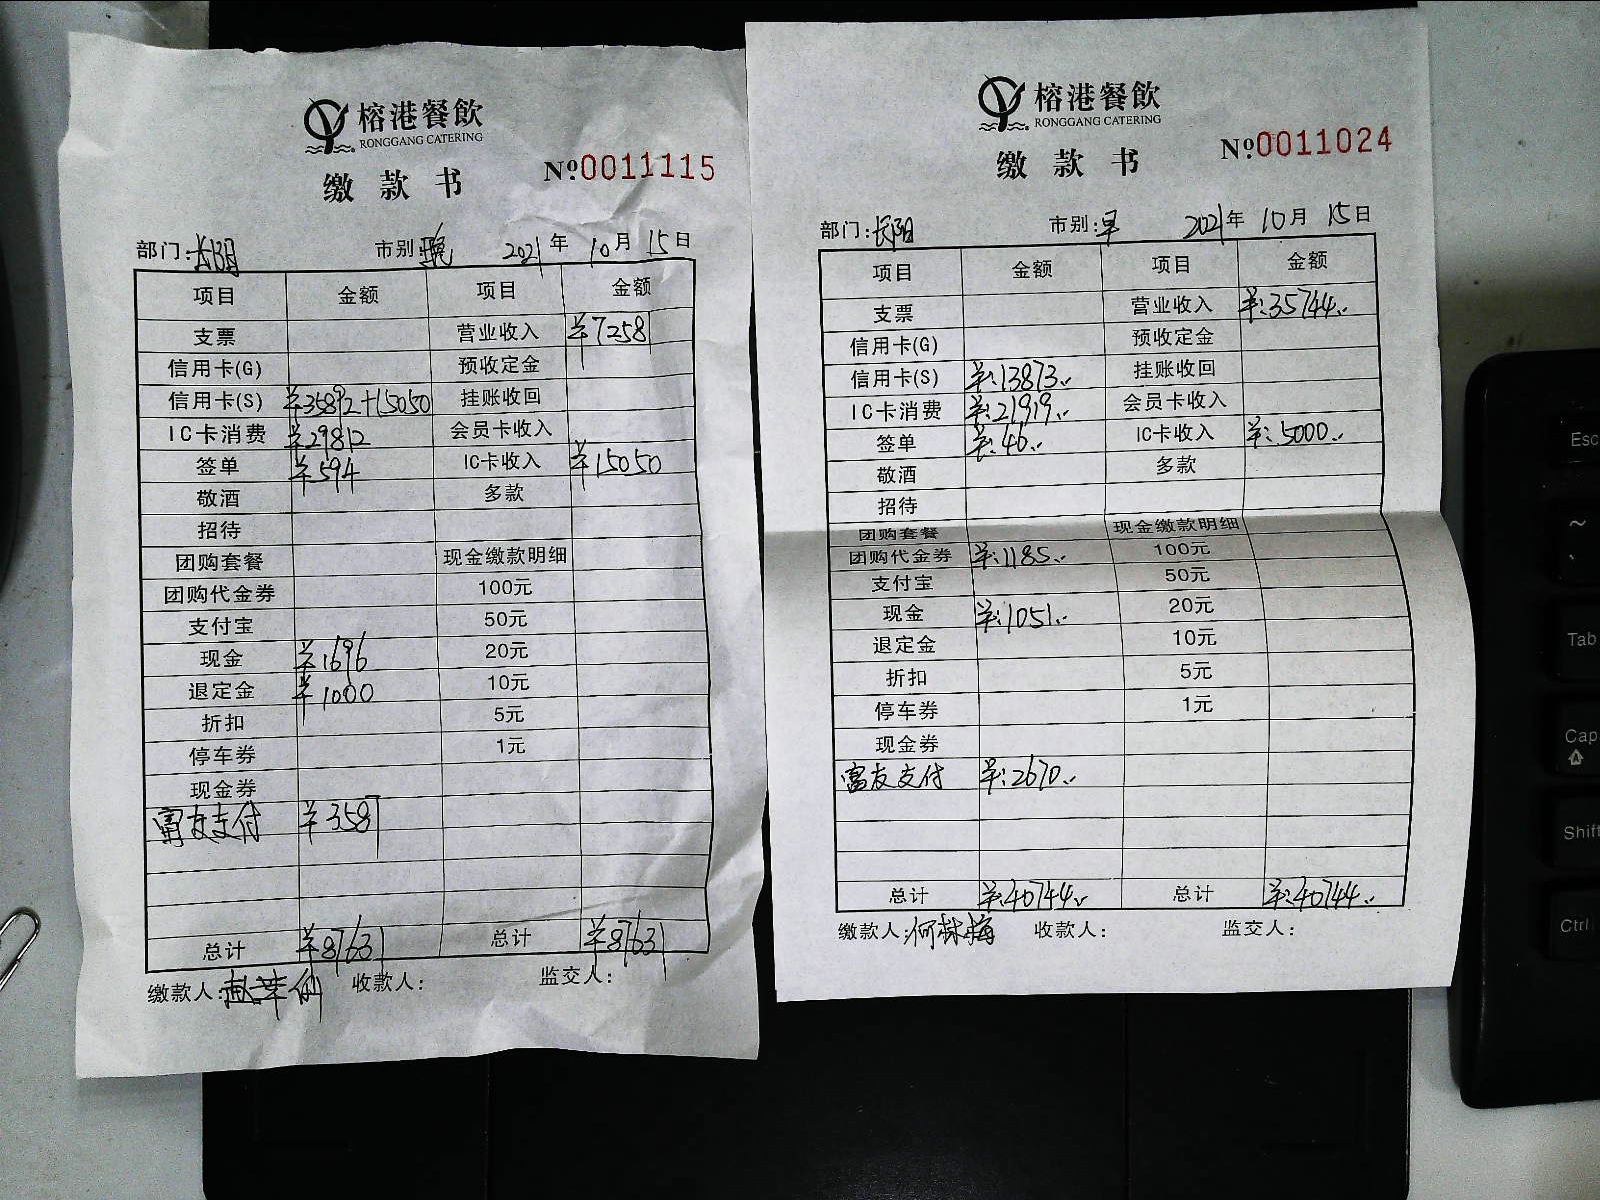 榕港餐飲
RONGGANG CATERING
缴款书
№0011115
部门:长阳 市别:晚 2021年10月15日
项目 金额 项目 金额
支票 营业收入 ¥72581
信用卡(G) 预收定金
信用卡(S) ¥35892+15050 挂账收回
IC卡消费 ¥29812 会员卡收入
签单 ¥594 IC卡收入 ¥15050
敬酒 多款
招待
团购套餐 现金缴款明细
团购代金券 100元
支付宝 50元
现金 ¥1696 20元
退定金 ¥1000 10元
折扣 5元
停车券 1元
现金券
富友支付 ¥3587
总计 ¥87631 总计 ¥87631
缴款人: 收款人: 监交人:
榕港餐飲
RONGGANG CATERING
缴款书
№0011024
部门:长阳 市别:早 2021年10月15日
项目 金额 项目 金额
支票 营业收入 ¥:35744..
信用卡(G) 预收定金
信用卡(S) ¥:13873.. 挂账收回
IC卡消费 ¥:21919.. 会员卡收入
签单 ¥:46.. IC卡收入 ¥:5000..
敬酒 多款
招待
团购套餐 现金缴款明细
团购代金券 ¥:1185.. 100元
支付宝 50元
现金 ¥:1051.. 20元
退定金 10元
折扣 5元
停车券 1元
现金券
富友支付 ¥:2670..
总计 ¥:40744.. 总计 ¥:40744..
缴款人:何林梅 收款人: 监交人:
Esc
~
Tab
Cap
Shift
Ctrl